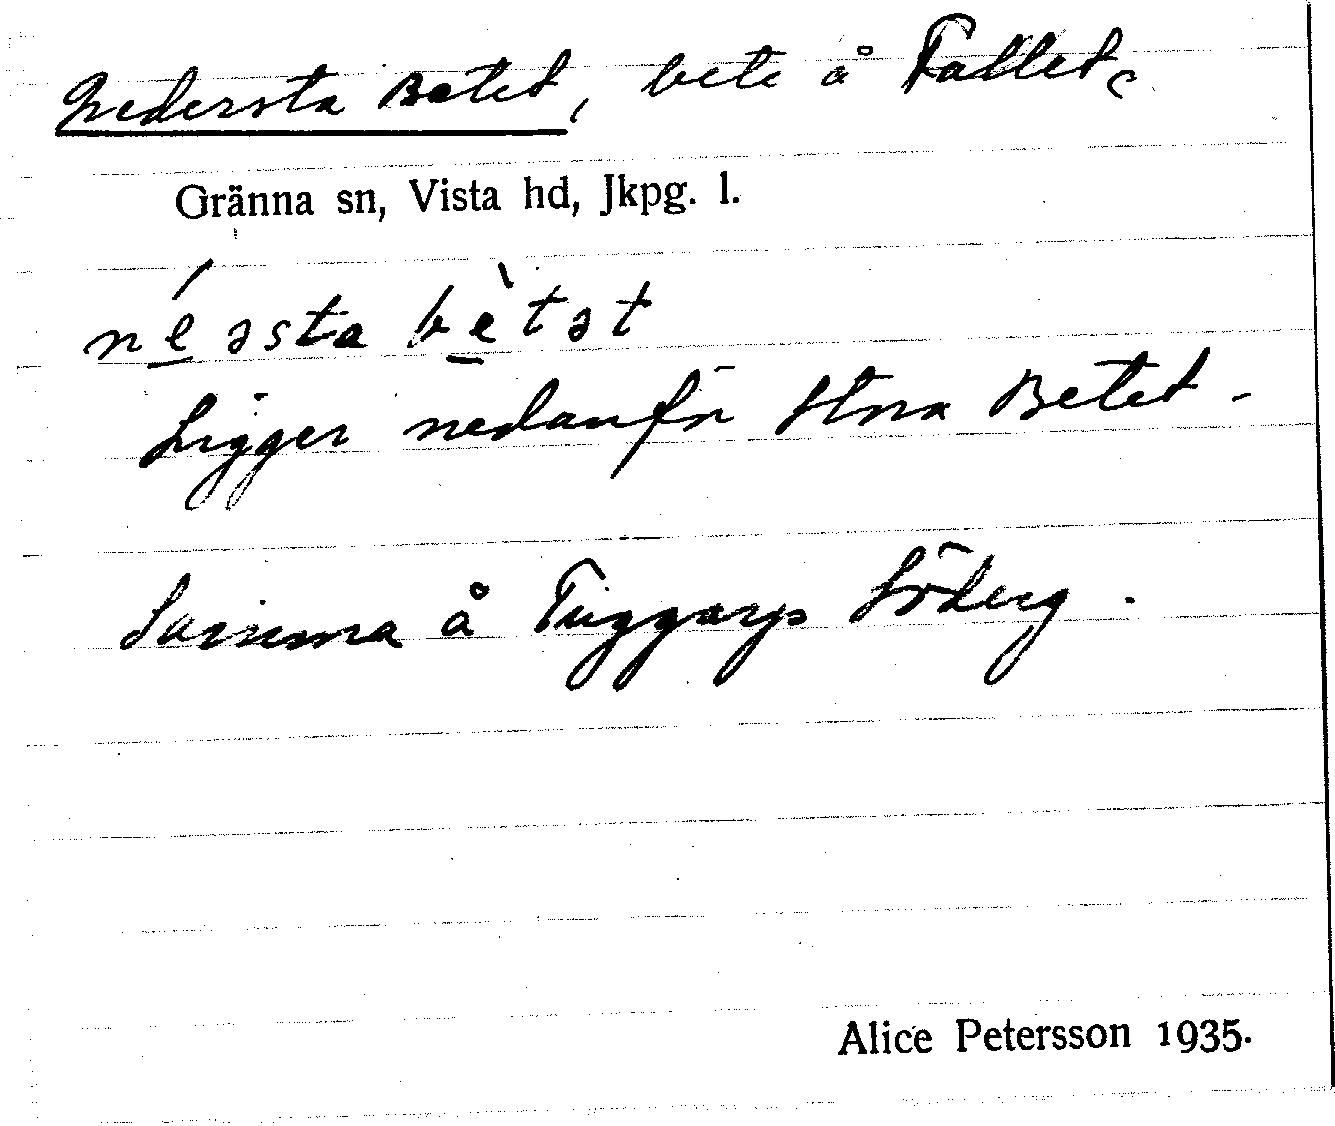 Nedersta Betet, bete å Fallet,
Gränna sn, Vista hd, Jkpg. l.
néəsta bètət
Ligger nedanför Stora Betet.
Samma å Tuggarps Söderg.
Alice Petersson 1935.